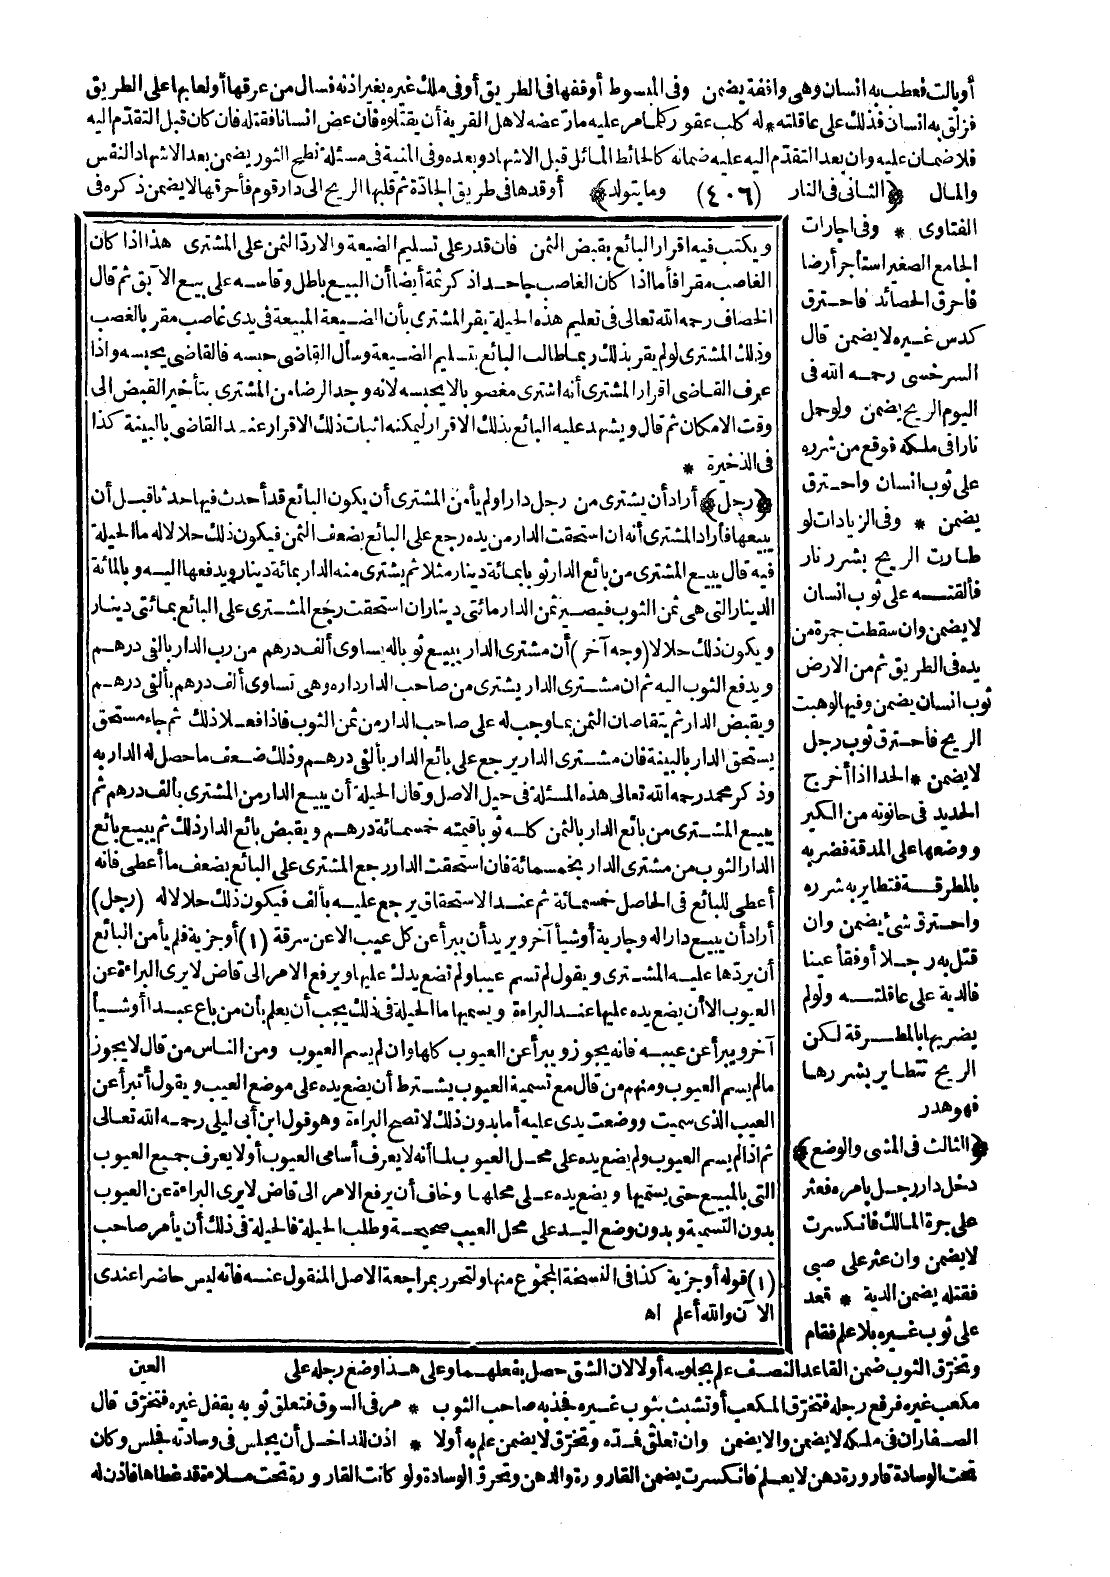 أو بالت فعطب به انسان وهي واقفة يضمن وفى المبسوط أوقفها فى الطريق أو فى ملك غيره بغير اذنه فسال من عرقها أو لعابها على الطريق
فزلق به انسان فذلك على عاقلته * له كلب عقور كلما مر عليه مار عضه لاهل القرية أن يقتلوه فان عض انسانا فقتله فان كان قبل التقدّم اليه
فلا ضمان عليه وان بعد التقدّم اليه عليه ضمانه كالحائط المائل قبل الاشهاد وبعده وفى المنية فى مسئلة نطح الثور يضمن بعد الاشهاد النفس
والمال ﴿الثانى فى النار (٤٠٦) وما يتولد﴾ أوقدها فى طريق الجادّة ثم قلبها الريح الى دار قوم فأحرقها لا يضمن ذكره فى
الفتاوى * وفى اجارات
الجامع الصغير استأجر أرضا
فاحرق الحصائد فاحترق
كدس غيره لا يضمن قال
السرخسى رحمه الله فى
اليوم الريح يضمن ولو حمل
نارا فى ملكه فوقع من شرره
على ثوب انسان واحترق
يضمن * وفى الزيادات لو
طارت الريح بشرر نار
فألقته على ثوب انسان
لا يضمن وان سقطت جمرة من
يده فى الطريق ثم من الارض
ثوب انسان يضمن وفيها لو هبت
الريح فأحترق ثوب رجل
لا يضمن * الحداد اذا أخرج
الحديد فى حانوته من الكير
ووضعها على المدقة فضربه
بالمطرقة فتطاير به شرره
واحترق شئ يضمن وان
قتل به رجلا أو فقأ عينا
فالدية على عاقلته ولو لم
يضربها بالمطرقة لكن
الريح تتطاير بشررها
فهو هدر
﴿الثالث فى المشى والوضع﴾
دخل دار رجل بامره فعثر
على جرة المالك فانكسرت
لا يضمن وان عثر على صبى
فقتله يضمن الدية * قعد
على ثوب غيره بلا علم فقام
ويكتب فيه اقرار البائع بقبض الثمن فان قدر على تسليم الضيعة والا ردّ الثمن على المشترى هذا اذا كان
الغاصب مقرا فأما اذا كان الغاصب جاحدا ذكر ثمة أيضا أن البيع باطل وقاسه على بيع الآبق ثم قال
الخصاف رحمه الله تعالى فى تعليم هذه الحيلة يقر المشترى بأن الضيعة المبيعة فى يدى غاصب مقر بالغصب
وذلك المشترى لو لم يقر بذلك ربما طالب البائع بتسليم الضيعة وسأل القاضى حبسه فالقاضى يحبسه واذا
عرف القاضى اقرار المشترى أنه اشترى مغصوبا لا يحبسه لانه وجد الرضا من المشترى بتأخير القبض الى
وقت الامكان ثم قال ويشهد عليه البائع بذلك الاقرار ليمكنه اثبات ذلك الاقرار عند القاضى بالبينة كذا
فى الذخيرة *
﴿رجل﴾ أراد أن يشترى من رجل دارا ولم يأمن المشترى أن يكون البائع قد أحدث فيها حدثا قبل أن
يبيعها فأراد المشترى أنه ان استحقت الدار من يده رجع على البائع بضعف الثمن فيكون ذلك حلالا له ما الحيلة
فيه قال يبيع المشترى من بائع الدار ثوبا بمائة دينار مثلا ثم يشترى منه الدار بمائة دينار ويدفعها اليه وبالمائة
الدينار التى هى ثمن الثوب فيصير ثمن الدار مائتى دينار ان استحقت رجع المشترى على البائع بمائتى دينار
ويكون ذلك حلالا (وجه آخر) أن مشترى الدار يبيع ثوبا له يساوى ألف درهم من رب الدار بألفى درهم
ويدفع الثوب اليه ثم ان مشترى الدار يشترى من صاحب الدار داره وهى تساوى ألف درهم بألفى درهم
ويقبض الدار ثم يتقاصان الثمن بما وجب له على صاحب الدار من ثمن الثوب فاذا فعلا ذلك ثم جاء مستحق
يستحق الدار بالبينة فان مشترى الدار يرجع على بائع الدار بألفى درهم وذلك ضعف ما حصل له الدار به
وذكر محمد رحمه الله تعالى هذه المسئلة فى حيل الاصل وقال الحيلة أن يبيع الدار من المشترى بألف درهم ثم
يبيع المشترى من بائع الدار بالثمن كله ثوبا قيمته خمسمائة درهم ويقبض بائع الدار ذلك ثم يبيع بائع
الدار الثوب من مشترى الدار بخمسمائة فان استحقت الدار رجع المشترى على البائع بضعف ما أعطى فانه
أعطى للبائع فى الحاصل خمسمائة ثم عند الاستحقاق يرجع عليه بألف فيكون ذلك حلالا له (رجل)
أراد أن يبيع دارا له وجارية أو شيأ آخر ويريد أن يبرأ عن كل عيب الا عن سرقة (١) أو جزية فلم يأمن البائع
أن يردّها عليه المشترى ويقول لم تسم عيبا ولم تضع يدك عليها ويرفع الامر الى قاض لا يرى البراءة عن
العيوب الا أن يضع يده عليها عند البراءة ويسميها ما الحيلة فى ذلك يجب أن يعلم بأن من باع عبدا أو شيأ
آخر ويبرأ عن عيبه فانه يجوز ويبرأ عن العيوب كلها وان لم يسم العيوب ومن الناس من قال لا يجوز
ما لم يسم العيوب ومنهم من قال مع تسمية العيوب يشترط أن يضع يده على موضع العيب ويقول أتبرأ عن
العيب الذى سميت ووضعت يدى عليه أما بدون ذلك لا تصح البراءة وهو قول ابن أبى ليلى رحمه الله تعالى
ثم اذا لم يسم العيوب ولم يضع يده على محل العيوب لما أنه لا يعرف أسامى العيوب أو لا يعرف جميع العيوب
التى بالمبيع حتى يسميها ويضع يده على محلها وخاف أن يرفع الامر الى قاض لا يرى البراءة عن العيوب
بدون التسمية وبدون وضع اليد على محل العيب صحيحة وطلب الحيلة فالحيلة فى ذلك أن يأمر صاحب
(١) قوله أو جزية كذا فى النسخة المجموع منها ولتحرر بمراجعة الاصل المنقول عنه فانه ليس حاضرا عندى
الآن والله أعلم اه
وتخرّق الثوب ضمن القاعد النصف علم بجلوسه أولا لان الشق حصل بفعلهما وعلى هذا وضع رجله على العين
مكعب غيره فرفع رجله فتخرّق المكعب أو تشبث بثوب غيره فجذبه صاحب الثوب * مر فى السوق فتعلق ثوبه بقفل غيره فتخرّق قال
الصفار ان فى ملكه لا يضمن والا يضمن وان تعلق فمده وتخرّق لا يضمن علم به أولا * اذن لداخل أن يجلس فى وسادته فجلس وكان
تحت الوسادة قارورة دهن لا يعلم فانكسرت يضمن القارورة والدهن وتخرق الوسادة ولو كانت القارورة تحت ملاءة قد غطاها فاذن له